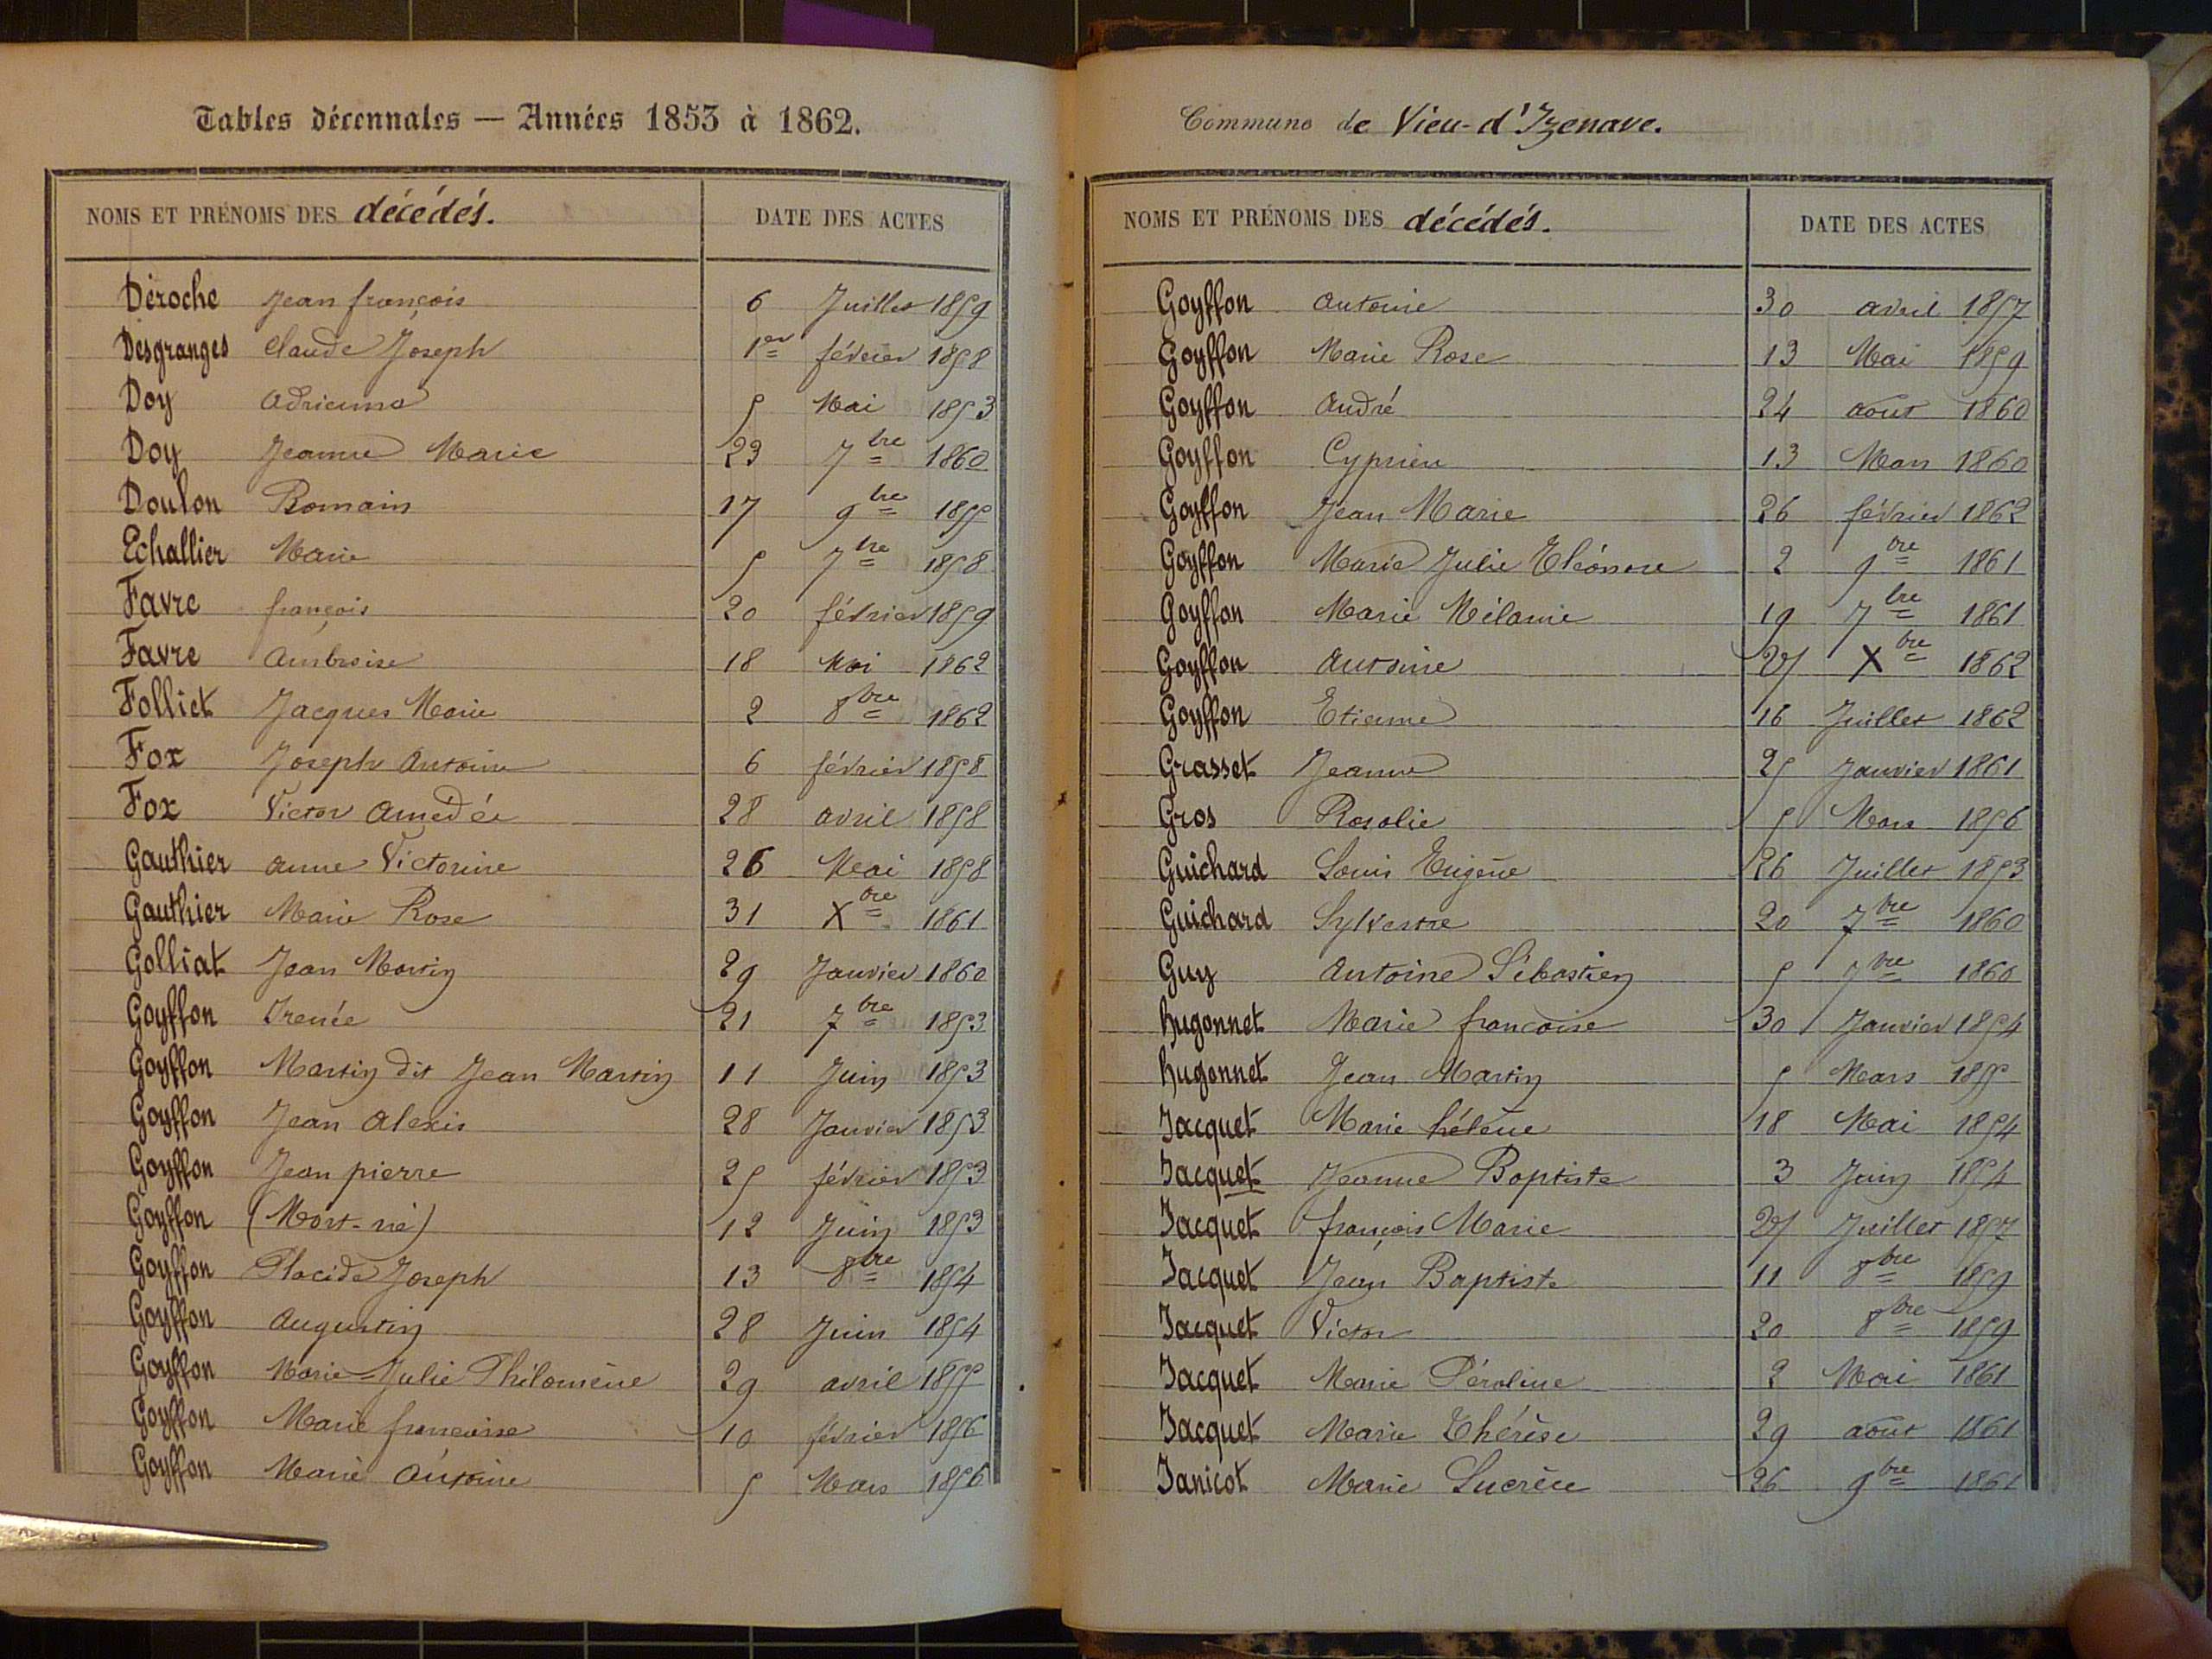 Tables décennales — Années 1853 à 1862.
NOMS ET PRÉNOMS DES décédés. DATE DES ACTES
Déroche Jean françois 6 Juillet 1859
Desgranges Claude Joseph 1er février 1858
Doy adrienne 5 Mai 1853
Doy Jeanne Marie 23 7bre 1860
Doulon Romain 17 9bre 1855
Echallier Marie 5 7bre 1858
Favre françois 20 février 1859
Favre ambroise 18 Mai 1862
Folliet Jacques Marie 2 8bre 1862
Fox Joseph antoine 6 février 1858
Fox Victor amédée 28 avril 1858
Gauthier anne Victorine 26 Mai 1858
Gauthier Marie Rose 31 Xbre 1861
Golliat Jean Martin 29 Janvier 1860
Goyffon Irenée 21 7bre 1853
Goyffon Martin dit Jean Martin 11 Juin 1853
Goyffon Jean alexis 28 Janvier 1853
Goyffon Jean pierre 25 février 1853
Goyffon (Mort-né) 12 Juin 1853
Goyffon Placide Joseph 13 8bre 1854
Goyffon augustin 28 Juin 1854
Goyffon Marie-Julie Philomène 29 avril 1855
Goyffon Marie francoise 10 février 1856
Goyffon Marie antoine 5 Mars 1856
Commune de Vieu-d'Izenave.
NOMS ET PRÉNOMS DES décédés. DATE DES ACTES
Goyffon antoine 30 avril 1857
Goyffon Marie Rose 13 Mai 1859
Goyffon andré 24 aout 1860
Goyffon Cyprien 13 Mars 1860
Goyffon Jean Marie 26 février 1862
Goyffon Marie Julie Eléonore 2 9bre 1861
Goyffon Marie Mélanie 19 7bre 1861
Goyffon antoine 27 Xbre 1862
Goyffon Etienne 16 Juillet 1862
Grasset Jeanne 25 Janvier 1861
Gros Rosalie 5 Mars 1856
Guichard Louis Eugène 26 Juillet 1853
Guichard Sylvestre 20 7bre 1860
Guy antoine Sébastien 5 9bre 1860
hugonnet Marie francoise 30 Janvier 1854
hugonnet Jean Martin 5 Mars 1855
Jacquet Marie hélène 18 Mai 1854
Jacquet Jeanne Baptiste 3 Juin 1854
Jacquet françois Marie 27 Juillet 1857
Jacquet Jean Baptiste 11 8bre 1859
Jacquet Victor 20 8bre 1859
Jacquet Marie Péroline 2 Mai 1861
Jacquet Marie Thérèse 29 aout 1861
Janicot Marie Lucrèce 26 9bre 1861